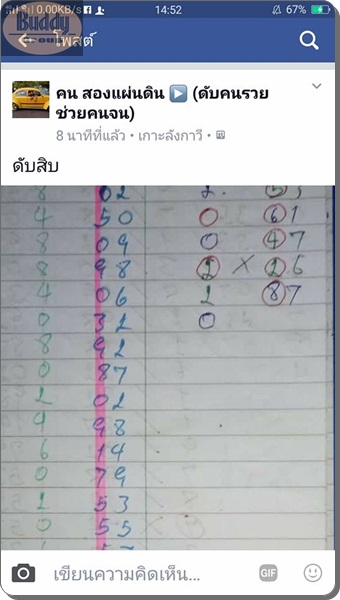 0.00KB/s 14:52 67%
Buddy
Group
โพสต์
คน สองแผ่นดิน ▶ (ดับคนรวย
ช่วยคนจน)
8 นาทีที่แล้ว • เกาะลังกาวี •
ดับสิบ
8 02 2.
4 50 0 61
8 09 0 47
8 98 2 × 26
4 06 2 87
0 32 0
8 92
0 87
2 02
4 98
6 14
0 79
2 53
0 55
เขียนความคิดเห็น... GIF